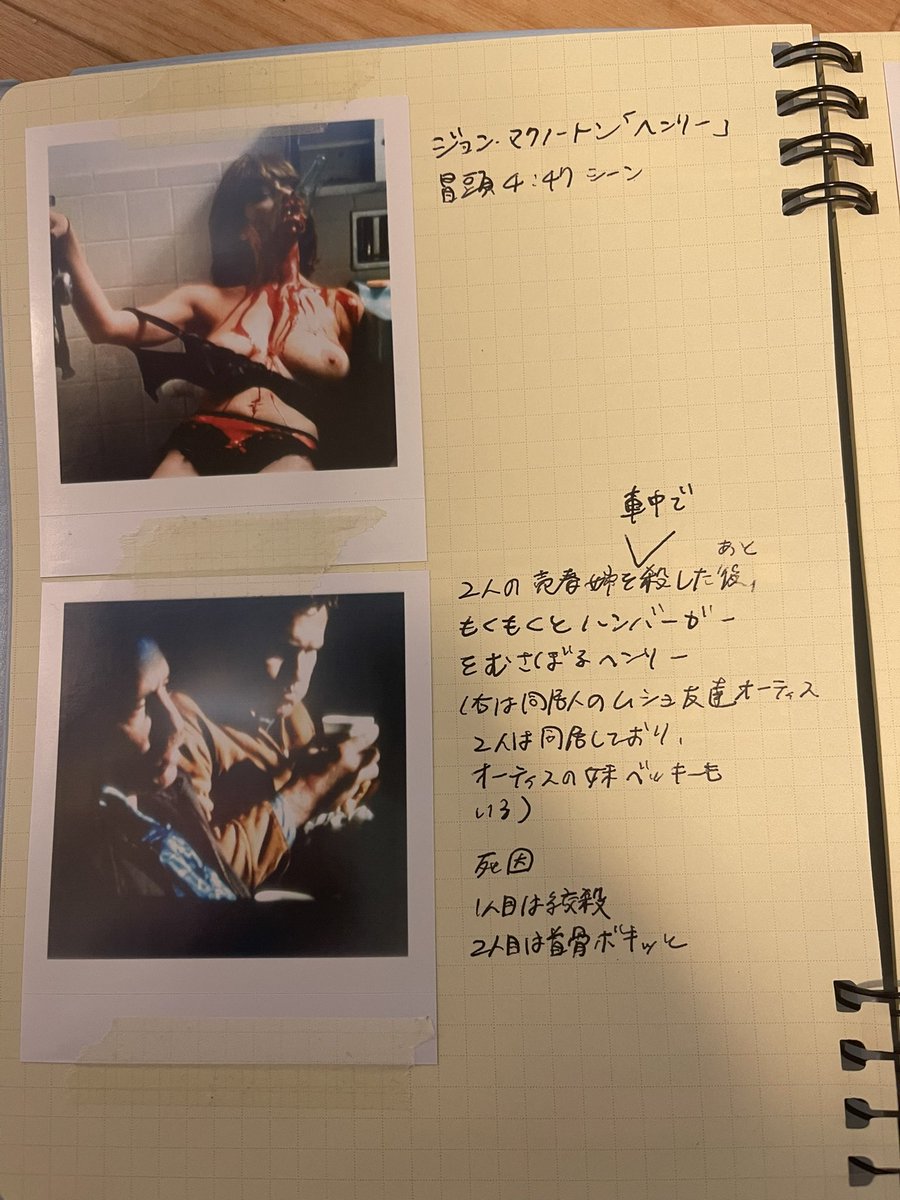 ジョン・マクノートン「ヘンリー」
冒頭4:47 シーン
車中で
あと
2人の売春婦を殺した後、
もくもくとハンバーガー
をむさぼるヘンリー
(右は同居人のムショ友達オーティス
2人は同居しており、
オーティスの妹ベッキーも
いる)
死因
1人目は絞殺
2人目は首骨ボキッと